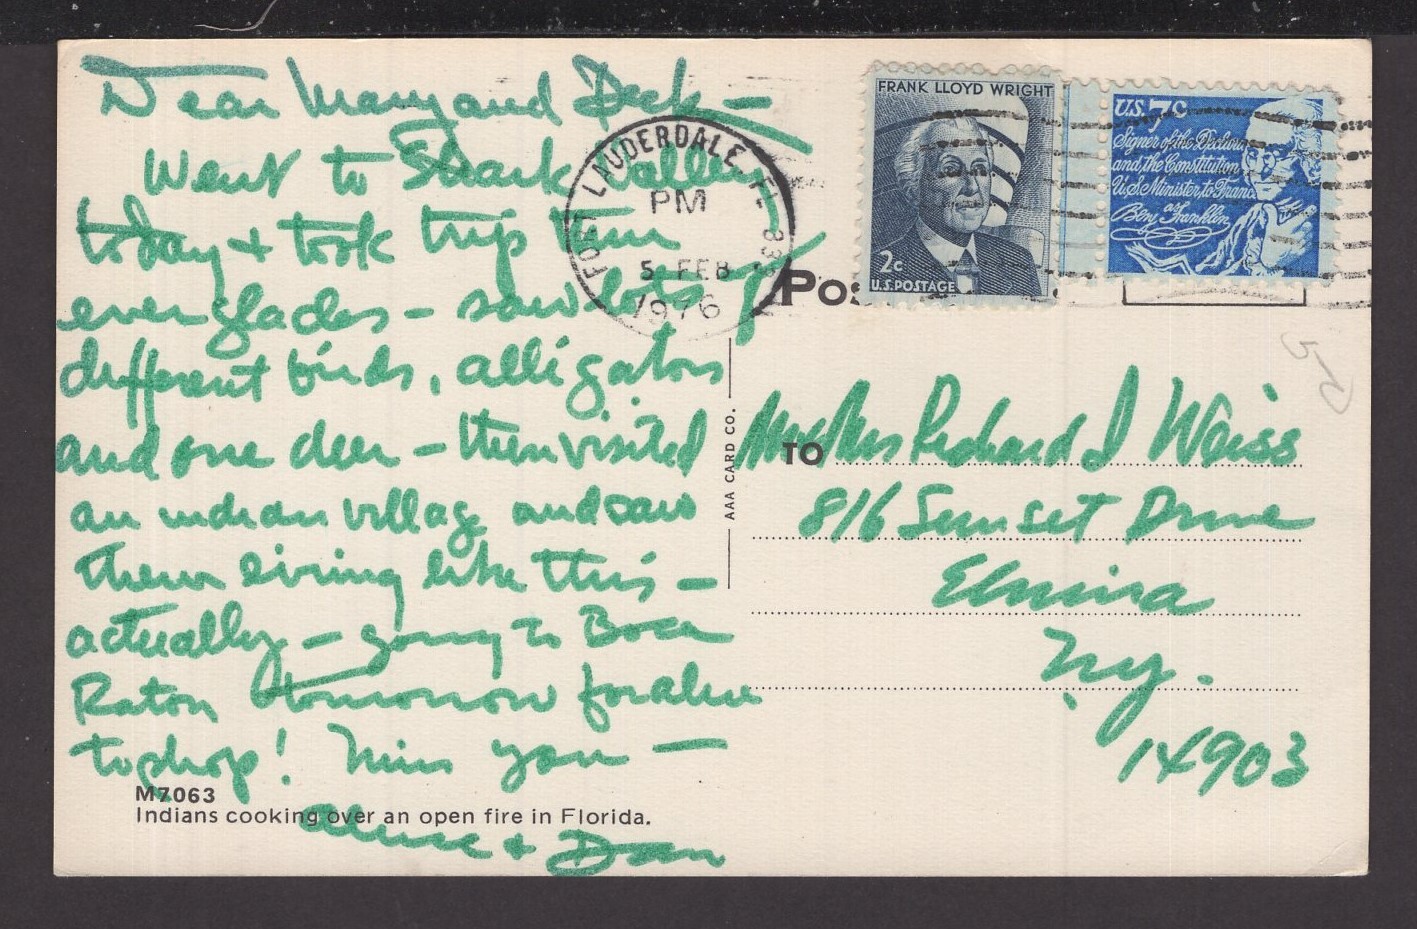 Dear Mary and Dick —
Went to Shark Valley
today + took trip thru
everglades - saw lots of
different birds, alligators
and one deer - then visited
an indian village and saw
them living like this -
actually - going to Boca
Raton tomorrow for a
to shop! Miss you -
+ Dan
M7063
Indians cooking over an open fire in Florida.
AAA CARD CO.
FORT LAUDERDALE, FL
PM
5 FEB
1976
FRANK LLOYD WRIGHT
2c
U.S. POSTAGE
U.S. 7c
Signer of the Declara
and the Constitution
U.S. Minister to Franc
as
Benj Franklin
Pos
TO
Mr + Mrs Richard I Weiss
816 Sunset Drive
Elmira
N.Y.
14903